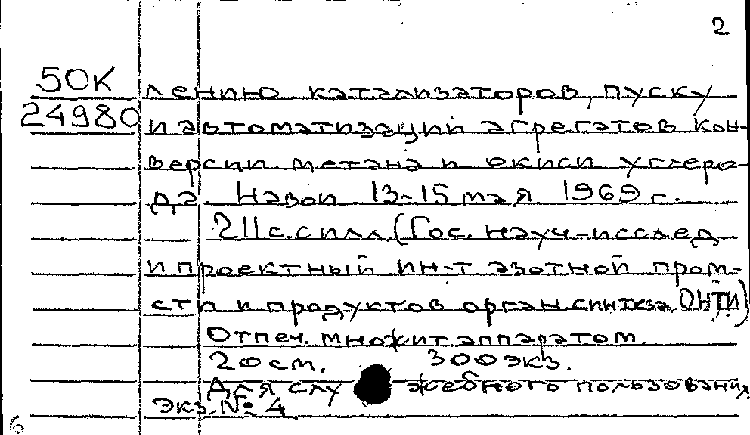 2
50К
24980
лению катализаторов, пуску
и автоматизаций агрегатов кон-
версии метана и окиси углеро-
да Навои 13-15 мая 1969 г.
211 с. с илл. (Гос. науч-исслед
и проектный ин-т азотной пром-
сти и продуктов орган синтеза ОНТИ)
Отпеч. множит. аппаратом.
20 см. 300 экз.
Для служебного пользования
Экз. № 4
б